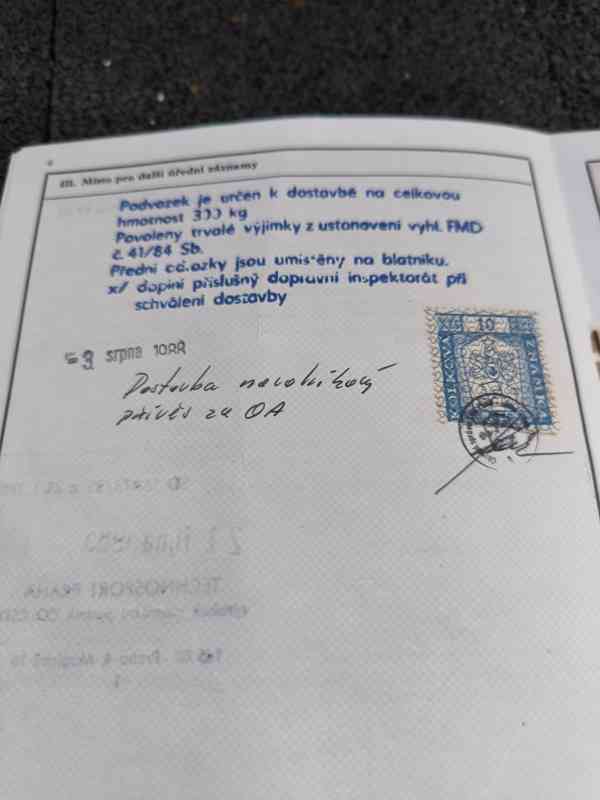 III. Místo pro další úřední záznamy
Podvozek je určen k dostavbě na celkovou
hmotnost 300 kg
Povoleny trvalé výjimky z ustanovení vyhl. FMD
č. 41/84 Sb.
Přední odrazky jsou umístěny na blatníku.
x/ doplní příslušný dopravní inspektorát při
schválení dostavby
-3. srpna 1988
Dostavba
přívěs za OA
KOLKOVÁ
10
ZNÁMKA
TECHNOSPORT PRAHA